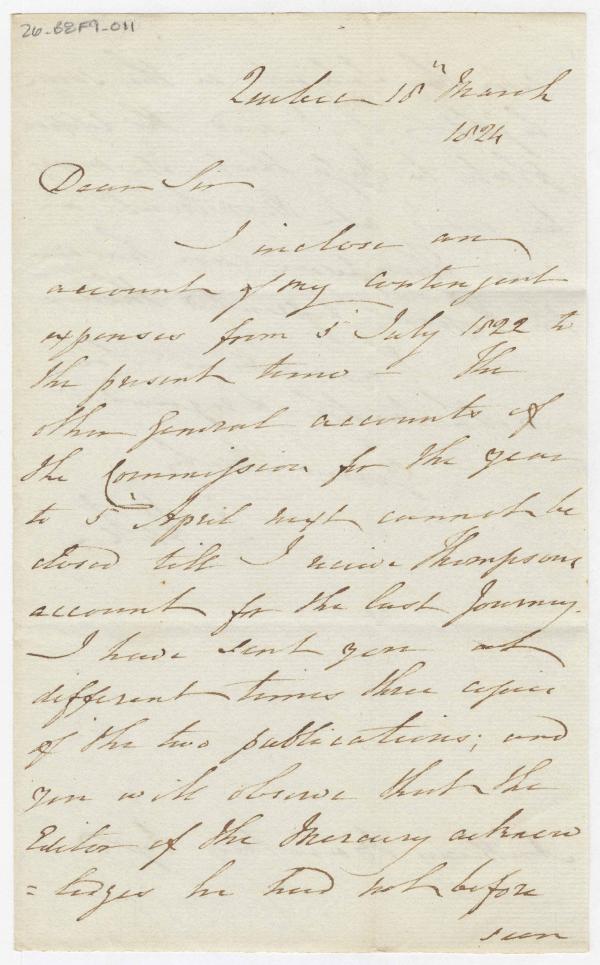 26-B2F9-011
Quebec 18th March
1824
Dear Sir
I inclose an
account of my contingent
expenses from 5 July 1822 to
the present time - The
other general accounts of
the Commission for the year
to 5 April next cannot be
closed till I receive Thompsons
account for the last Journey.
I have sent you at
different times three copies
of the two publications; and
you will observe that the
Editor of the Mercury acknow
=ledges he had not before
seen